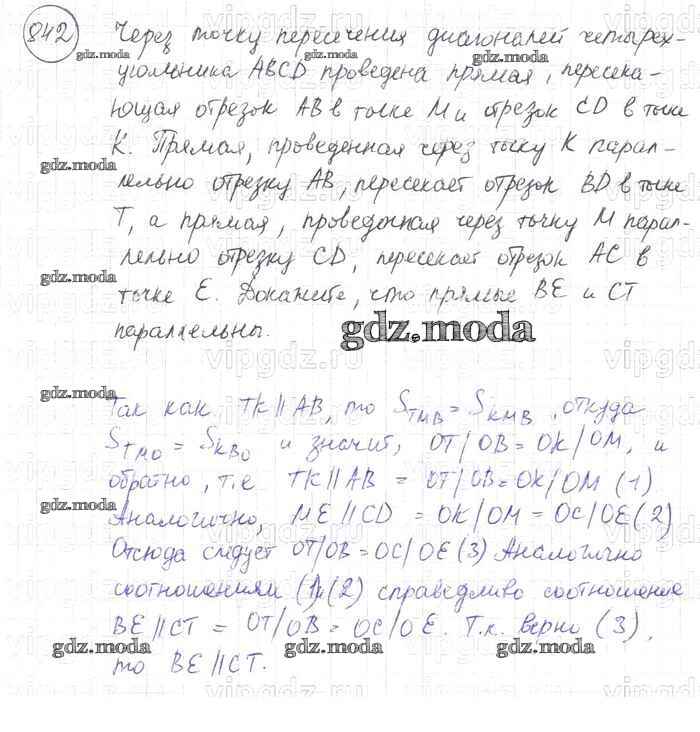 842 Через точку пересечения диагоналей четырех-
угольника ABCD проведена прямая, пересека-
ющая отрезок AB в точке M и отрезок CD в точке
K. Прямая, проведенная через точку K парал-
лельно отрезку AB, пересекает отрезок BD в точке
T, а прямая, проведенная через точку M парал-
лельно отрезку CD, пересекает отрезок AC в
точке E. Докажите, что прямые BE и CT
параллельны.
gdz.moda
Так как TK∥AB, то S_TMB = S_KMB, откуда
S_TMO = S_KBO и значит, OT/OB = OK/OM, и
обратно, т.е TK∥AB = OT/OB = OK/OM (1)
Аналогично, ME∥CD = OK/OM = OC/OE (2)
Отсюда следует OT/OB = OC/OE (3) Аналогично
соотношениями (1)и(2) справедливо соотношение
BE∥CT = OT/OB = OC/OE. Т.к. верно (3),
то BE∥CT.